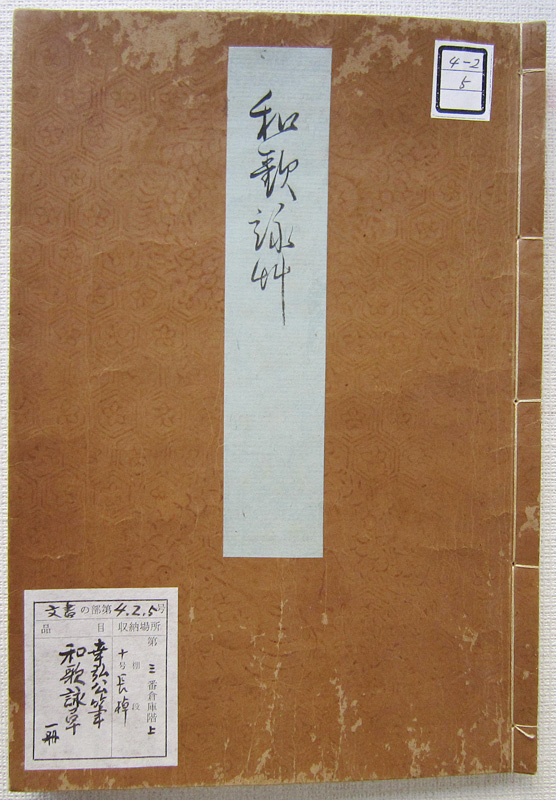 和歌詠艸
4-2
5
文書の部第4.2.5号
品目
収納場所
第三番倉庫階上
棚段
十号長棹
幸弘公筆
和歌詠草
一冊